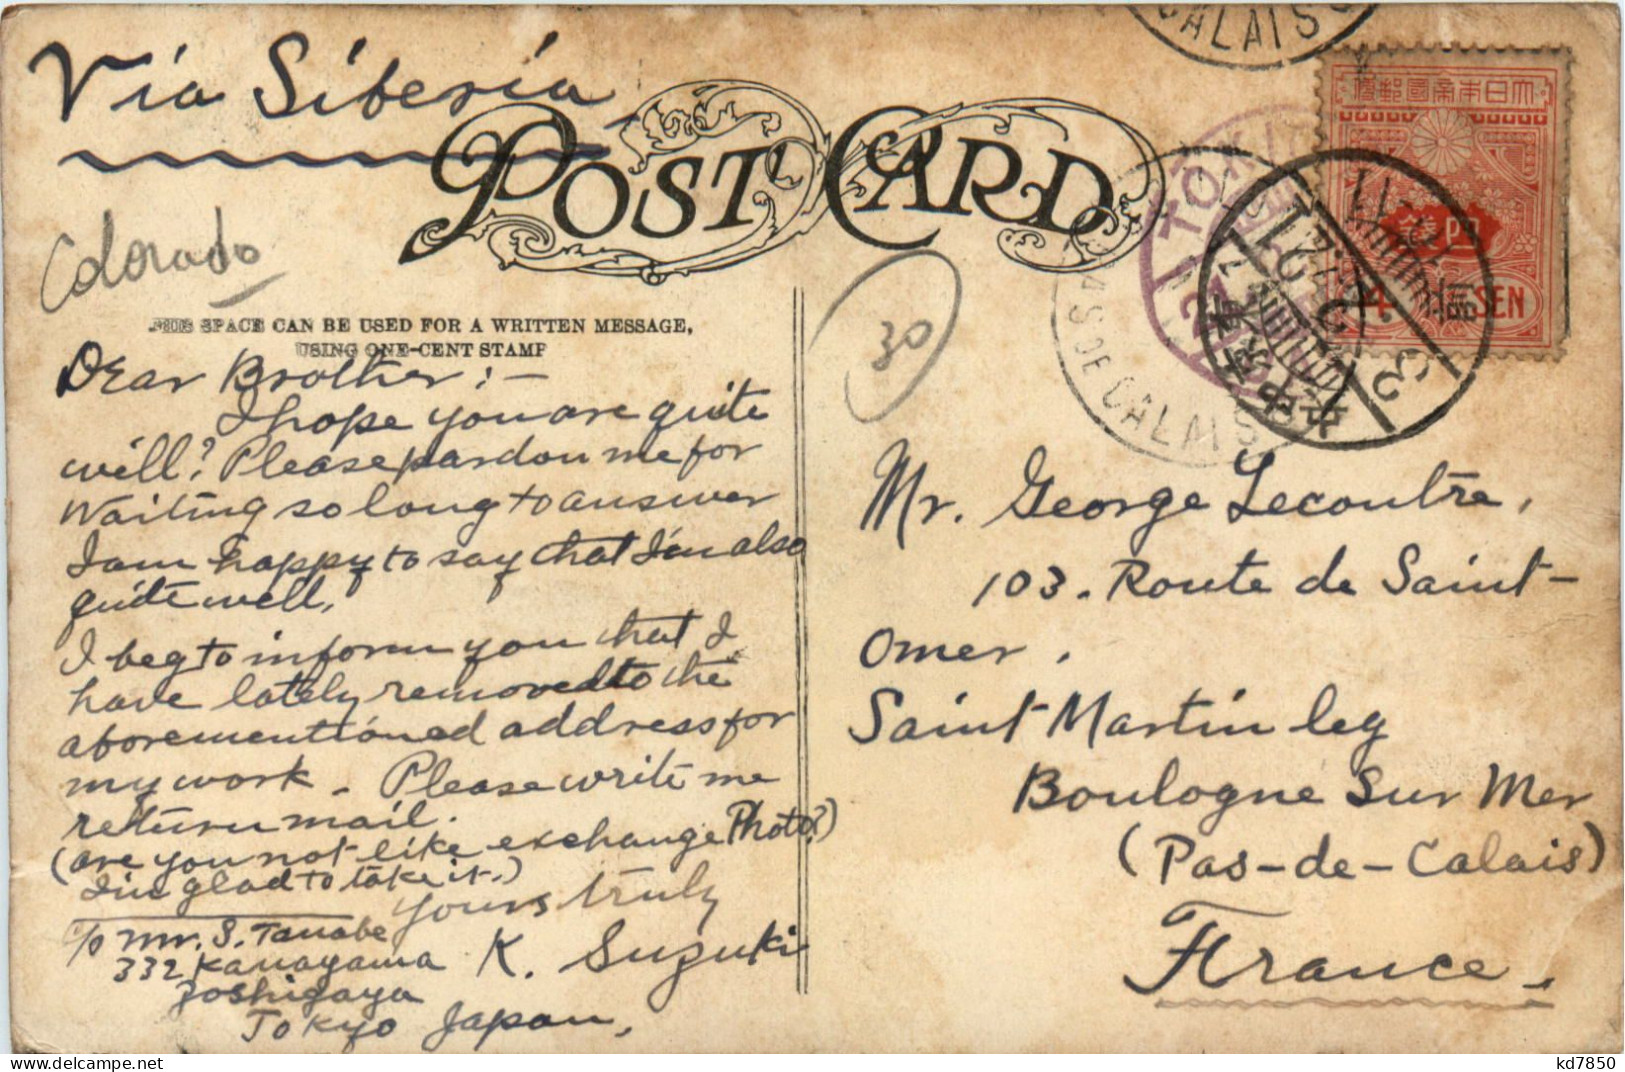 Via Siberia
POST CARD
Colorado
THIS SPACE CAN BE USED FOR A WRITTEN MESSAGE,
USING ONE-CENT STAMP
Dear Brother:-
I hope you are quite
well? Please pardon me for
waiting so long to answer
I am happy to say that I'm also
quite well.
I beg to inform you that I
have lately removed to the
aforementioned address for
my work. Please write me
return mail.
(are you not like exchange Photo?)
I'm glad to take it.)
Yours truly
K. Suzuki
c/o Mr. S. Tanabe
332 Kanayama
Yoshigaya
Tokyo Japan,
30
CALAIS
大日本帝國郵便
四銭
4 SEN
TOKIO
21
PAS DE CALAIS
Mr. George Lecoutre,
103. Route de Saint-
Omer.
Saint Martin leg
Boulogne Sur Mer
(Pas-de-Calais)
France.
kd7850